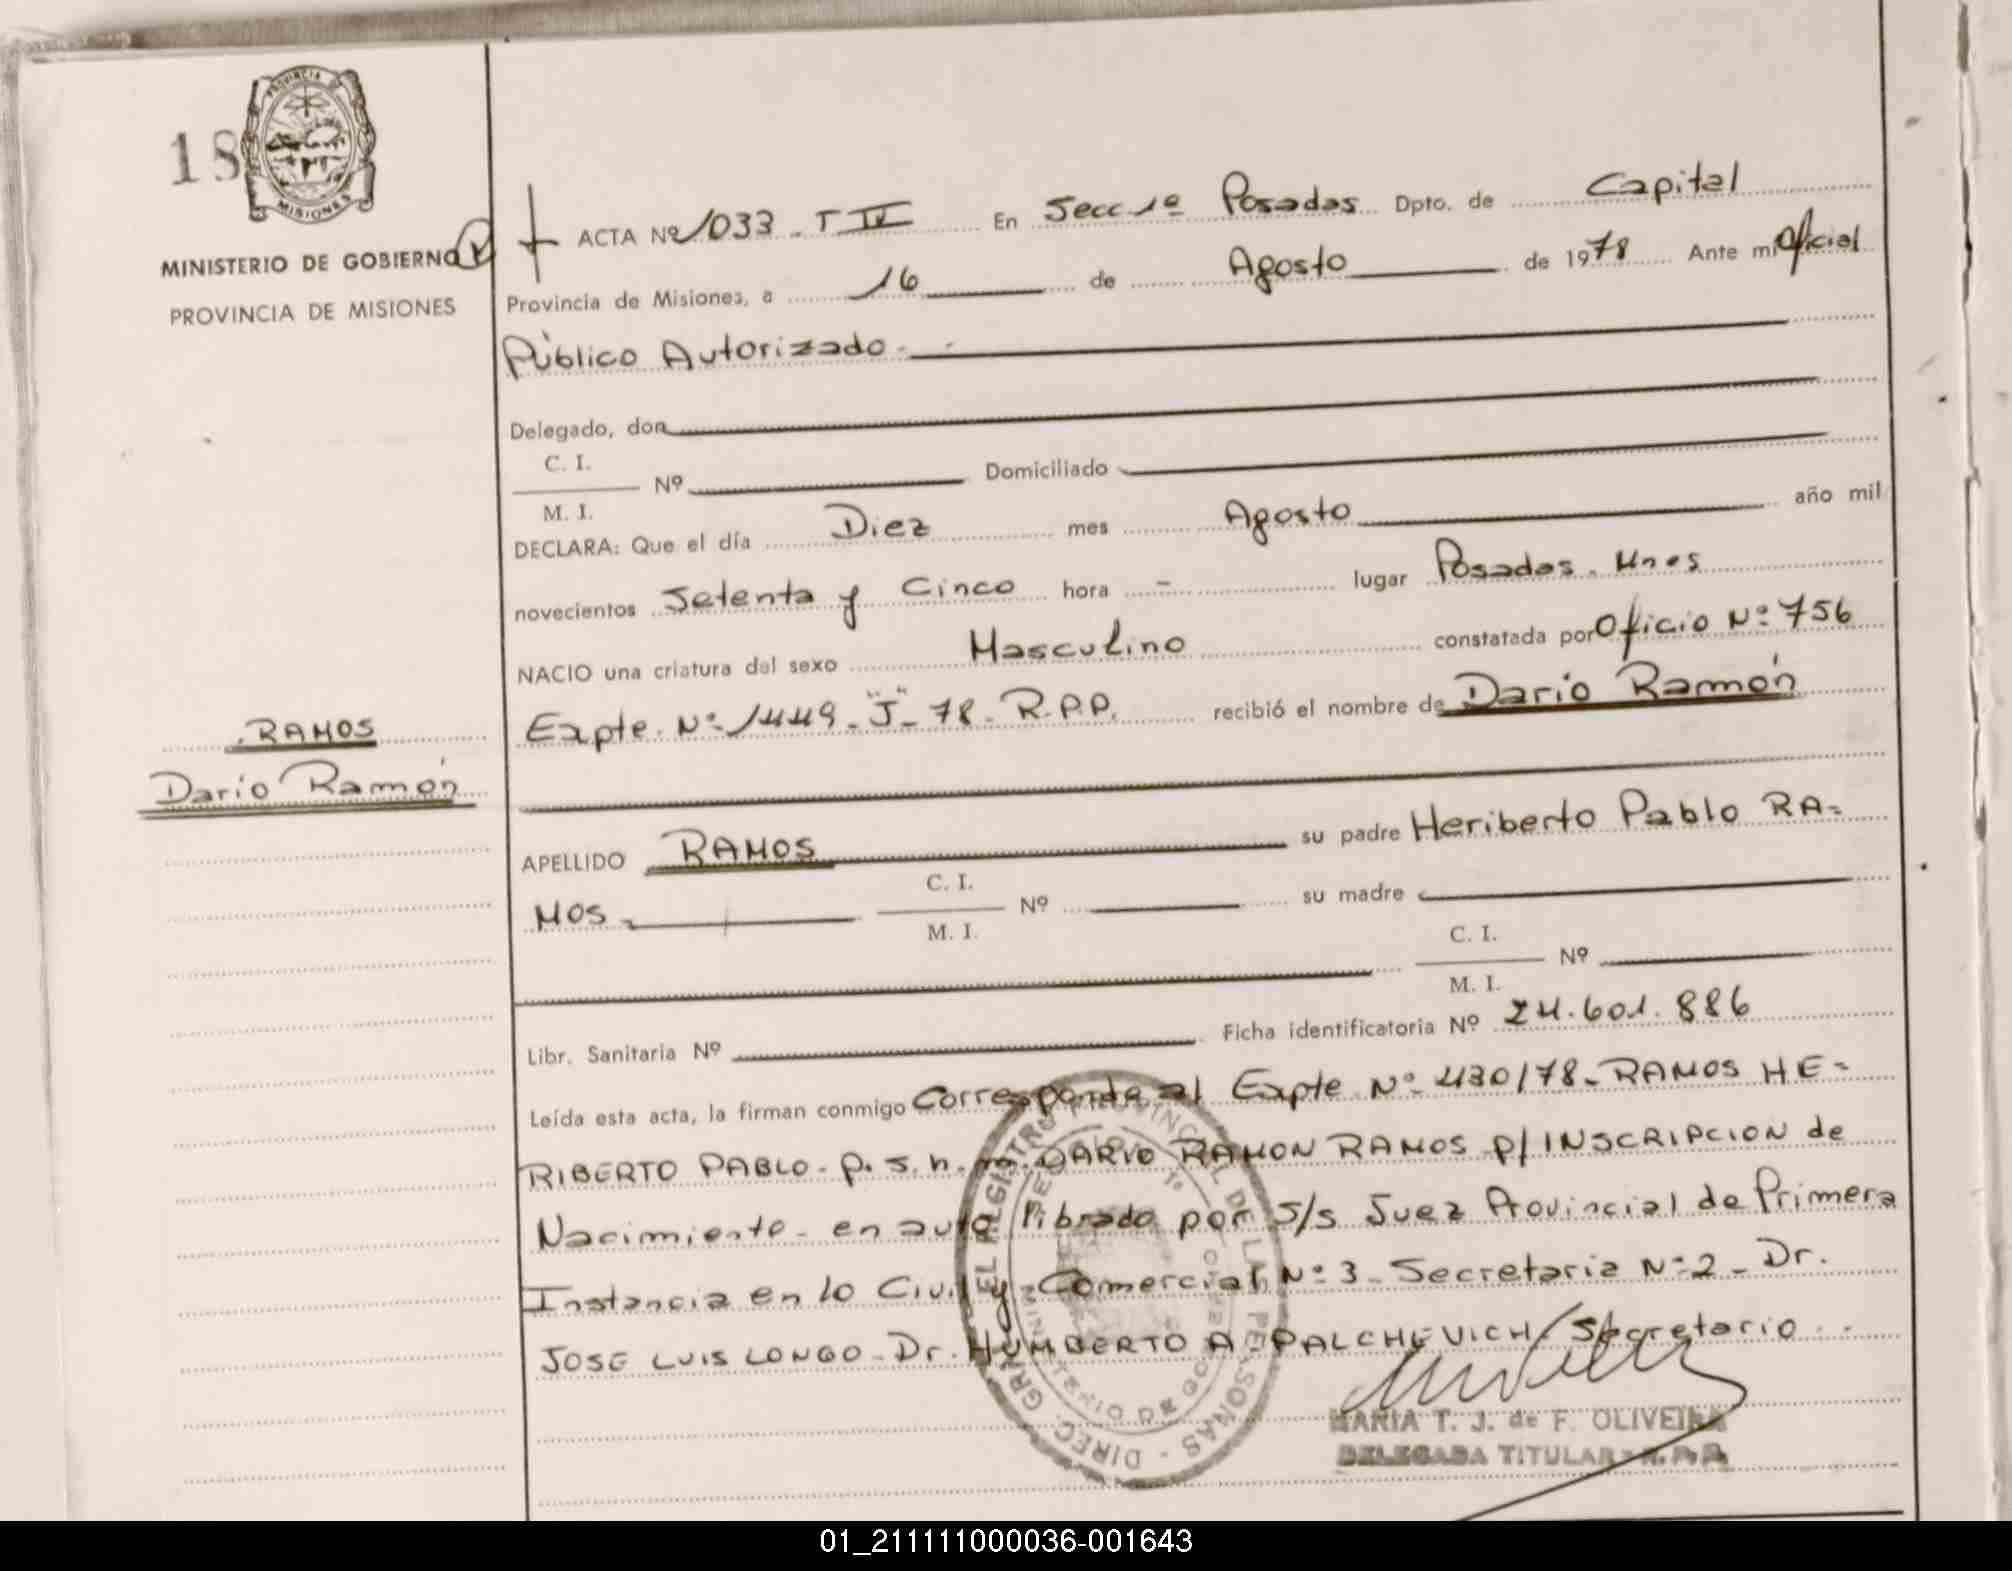 18
PROVINCIA DE
MISIONES
MINISTERIO DE GOBIERNO
PROVINCIA DE MISIONES
RAMOS
Darío Ramón
ACTA Nº 1033 - T IV En Secc 1º Posadas Dpto. de Capital
Provincia de Misiones, a 16 de Agosto de 1978 Ante mi Oficial
Público Autorizado.-
Delegado, don
C. I.
M. I. Nº Domiciliado
DECLARA: Que el día Diez mes Agosto año mil
novecientos Setenta y Cinco hora - lugar Posadas. Mnes
NACIO una criatura del sexo Masculino constatada por Oficio Nº 756
Expte. Nº 1449 - "J" - 78 - R.P.P. recibió el nombre de Darío Ramón
APELLIDO RAMOS su padre Heriberto Pablo RA-
MOS C. I. M. I. Nº su madre
C. I. M. I. Nº
Libr. Sanitaria Nº Ficha identificatoria Nº 24.601.886
Leída esta acta, la firman conmigo Corresponde al Expte. Nº 430/78 - RAMOS HE-
RIBERTO PABLO - p. s. h. m. DARIO RAMON RAMOS p/ INSCRIPCION de
Nacimiento - en auto librado por S/s Juez Provincial de Primera
Instancia en lo Civil y Comercial Nº 3 - Secretaria Nº 2 - Dr.
JOSE LUIS LONGO - Dr. HUMBERTO A. PALCHEVICH / Secretario
MARIA T. J. de F. OLIVEIRA
DELEGADA TITULAR - R. P. P.
01_211111000036-001643